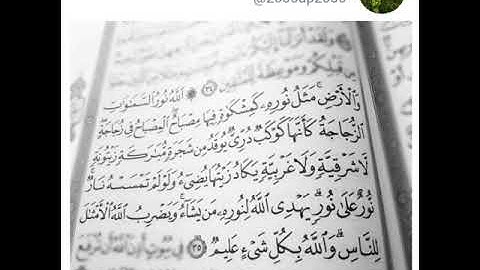 وَلَقَدْ أَنزَلْنَا
قَبْلِكُمْ وَمَوْعِظَةً لِّلْمُتَّقِينَ ٣٤ ۞ ٱللَّهُ نُورُ ٱلسَّمَٰوَٰتِ
وَٱلْأَرْضِ ۚ مَثَلُ نُورِهِۦ كَمِشْكَوٰةٍ فِيهَا مِصْبَاحٌ ۖ ٱلْمِصْبَاحُ فِى زُجَاجَةٍ ۖ
ٱلزُّجَاجَةُ كَأَنَّهَا كَوْكَبٌ دُرِّىٌّ يُوقَدُ مِن شَجَرَةٍ مُّبَٰرَكَةٍ زَيْتُونَةٍ
لَّا شَرْقِيَّةٍ وَلَا غَرْبِيَّةٍ يَكَادُ زَيْتُهَا يُضِىٓءُ وَلَوْ لَمْ تَمْسَسْهُ نَارٌ ۚ
نُّورٌ عَلَىٰ نُورٍ ۗ يَهْدِى ٱللَّهُ لِنُورِهِۦ مَن يَشَآءُ ۚ وَيَضْرِبُ ٱللَّهُ ٱلْأَمْثَٰلَ
لِلنَّاسِ ۗ وَٱللَّهُ بِكُلِّ شَىْءٍ عَلِيمٌ ٣٥ فِى بُيُوتٍ أَذِنَ ٱللَّهُ أَن تُرْفَعَ